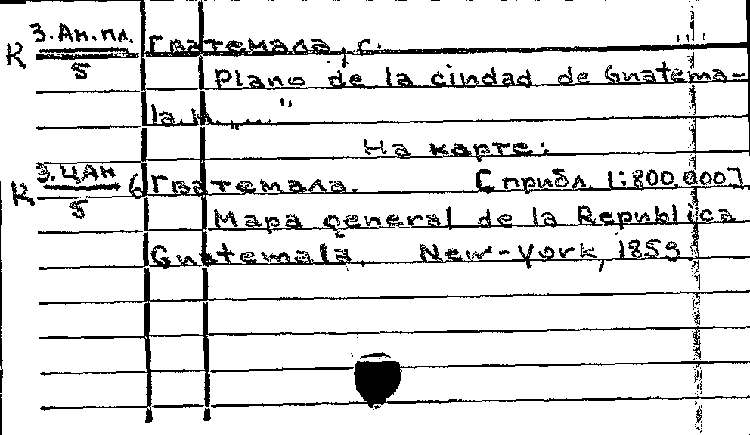 К 3.Ан.пл. Гватемала, г.
5 Plano de la ciudad de Guatema-
la.
На карте:
К 3.ЦАн 6 Гватемала. [прибл. 1:800,000]
5 Mapa general de la Republica
Guatemala. New-York, 1859